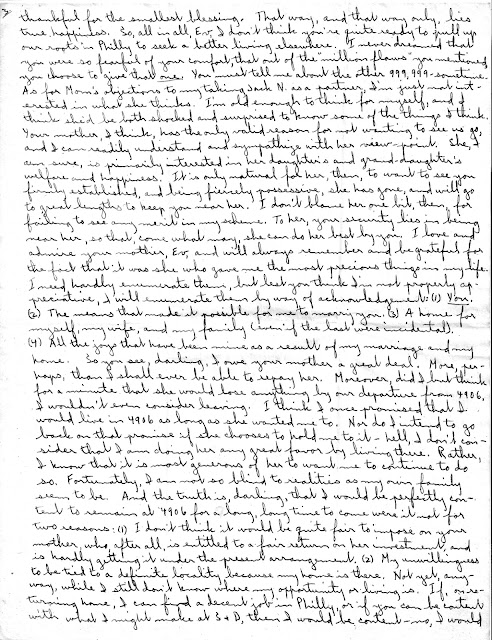 thankful for the smallest blessing. That way, and that way only, lies
true happiness. So, all in all, Ev, I don't think you're quite ready to pull up
our roots in Philly to seek a better living elsewhere. I never dreamed that
you were so fearful of your comfort that out of the "million flaws" you mentioned
you choose to give that one. You must tell me about the other 999,999 sometime.
As for Mom's objections to my taking Jack N. as a partner, I'm just not int-
erested in what she thinks. I'm old enough to think for myself, and I
think she'd be both shocked and surprised to know some of the things I think.
Your mother, I think, has the only valid reason for not wanting to see us go,
and I can readily understand and sympathize with her view-point. She, I
am sure, is primarily interested in her daughter's and grand-daughter's
welfare and happiness. It is only natural for her, then, to want to see you
firmly established, and being fiercely possessive, she has gone, and will go
to great lengths to keep you near her. I don't blame her one bit, then, for
failing to see any merit in my scheme. To her, your security lies in being
near her, so that, come what may, she can do her best by you. I love and
admire your mother, Ev, and will always remember and be grateful for
the fact that it was she who gave me the most precious things in my life.
I need hardly enumerate them, but lest you think I'm not properly ap-
preciative, I will enumerate them by way of acknowledgement: (1) You.
(2) The means that made it possible for me to marry you. (3) A home for
myself, my wife, and my family (even if the last were incidental).
(4) All the joys that have been mine as a result of my marriage and my
home. So you see, darling, I owe your mother a great deal. More, per-
haps, than I shall ever be able to repay her. Moreover, did I but think
for a minute that she would lose anything by our departure from 4906,
I wouldn't even consider leaving. I think I once promised that I
would live in 4906 as long as she wanted me to. Nor do I intend to go
back on that promise if she chooses to hold me to it - hell, I don't con-
sider that I am doing her any great favor by living there. Rather,
I know that it is most generous of her to want me to continue to do
so. Fortunately, I am not so blind to realities as my own family
seem to be. And the truth is, darling, that I would be perfectly con-
tent to remain at 4906 for a long, long time to come were it not for
two reasons: (1) I don't think it would be quite fair to impose on your
mother, who, after all, is entitled to a fair return on her investment, and
is hardly getting it under the present arrangement. (2) My unwillingness
to be tied to a definite locality because my home is there. Not yet, any-
way, while I still don't know where my opportunity or living is. If, on re-
turning home, I can find a decent job in Philly, or if you can be content
with what I might make at S & D, then I would be content - no, I would